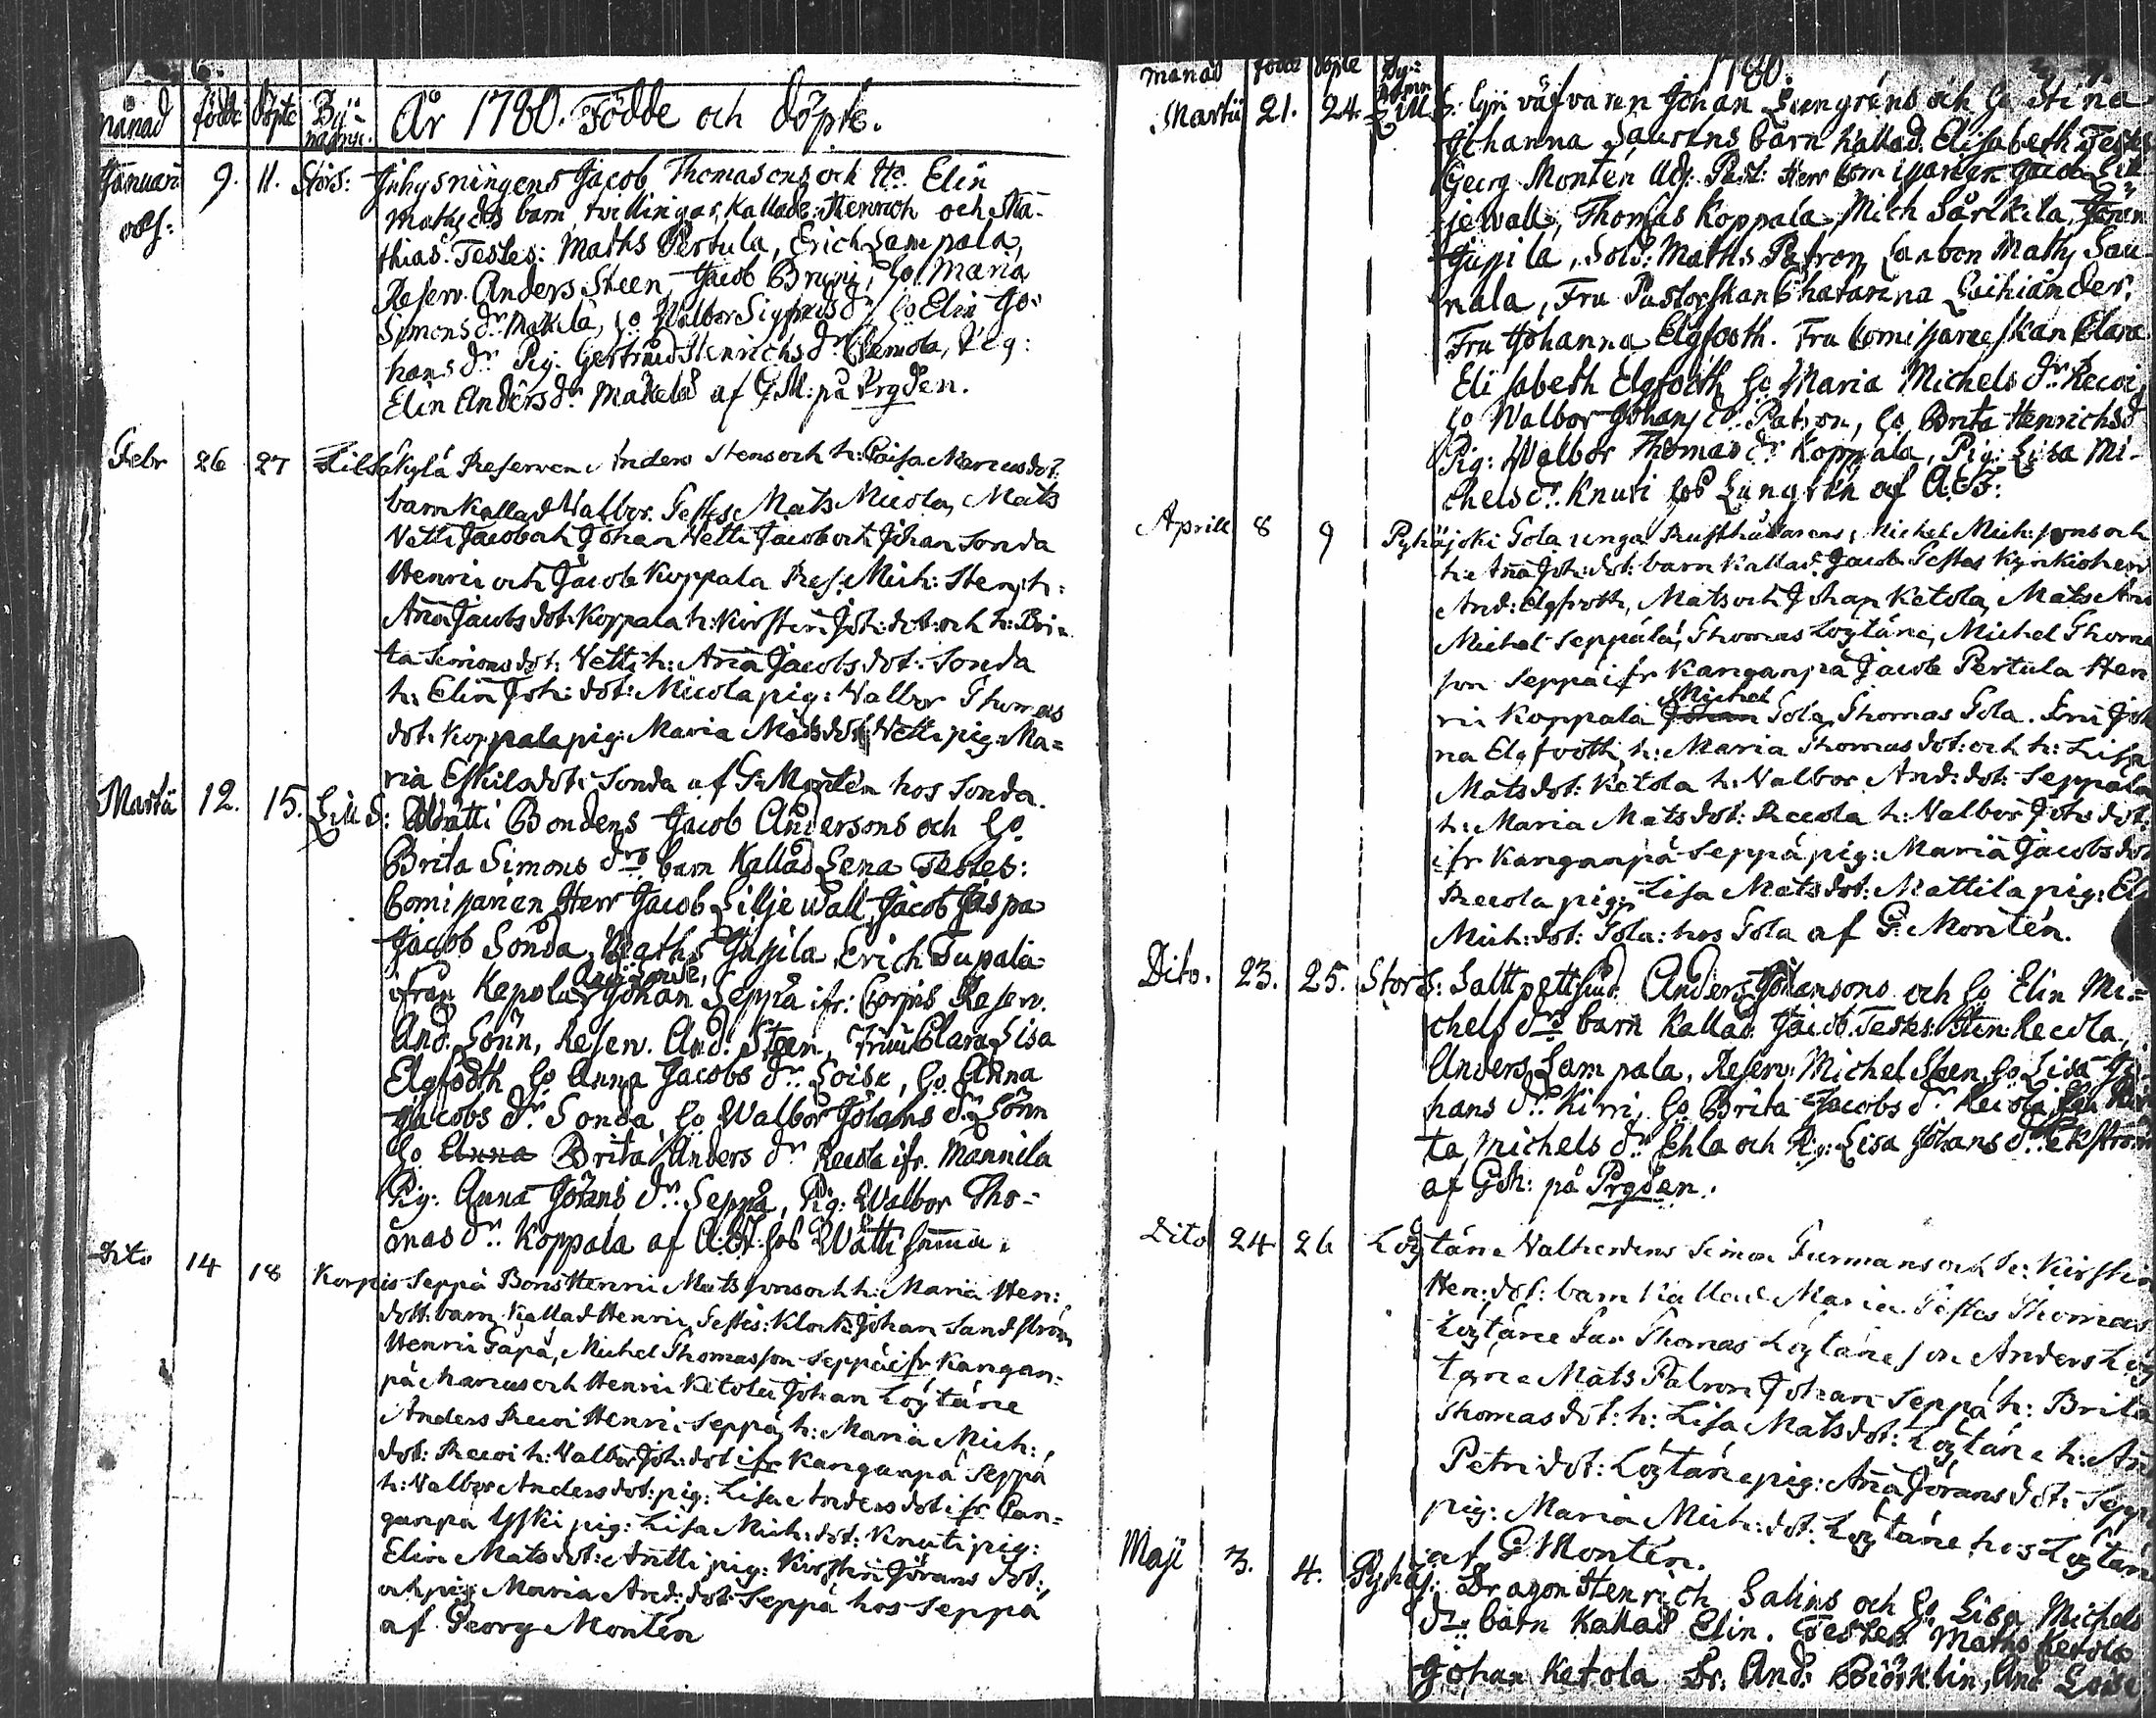 månad födde döpte By= namn. År 1780. Födde och döpte.
Januari 9. 11. Stors: Inhysningens Jacob Thomasons och H:o Elin
Maths drs barn, tvillingar, kallade: Henrich och Ma-
thias. Testes: Maths Pertula, Erich Lampala,
Reserv. Anders Steen, Jacob Bruni, Ho. Maria
Simons dr Makila, ho Walbor Sigfrids dr, ho Elin Jo-
hans dr. Pig: Gertrud Henrichs dr Clemola, Pig:
Elin Anders dr. Makelä af G.M: på Prgden.
Febr 26 27 Lillsäkylä Reserven Anders Stens och h: Caisa Marcus dot:
barn kallad Walbor. Testes Mats Nicola, Mats
Vetti Jacob och Johan Vetti Jacob och Johan Sonda
Henric och Jacob Koppala Res: Mich: Sten, h:
Aña Jacobs dot: Koppala h: Kirstin Joh: dot: och h: Bri=
ta Simons dot: Vetti h: Aña Jacobs dot: Sonda
h: Elin Joh: dot: Nicola pig: Walbor Thomas
dot: Koppala pig: Maria Mats dot: Vetti pig: Ma=
ria Eskils dot: Sonda af G: Montén hos Sonda.
Martii 12. 15. Lill S: Wätti Bondens Jacob Andersons och ho
Brita Simons drs barn kallad Lena Testes:
Comissarien Herr Jacob Liljewall, Jacob Jaspa
Jacob Sonda, Maths Jussila, Erich Tupala
ifrån Kepola, Johan Seppä ifr: Corpis Reserv.
And. Lönn, Reserv. And. Steen, Fru Clara Lisa
Elgfooth, ho Anna Jacobs dr. Loise, ho Anna
Jacobs dr. Sonda, ho Walbor Johans dr Lönn
ho Anna Brita Anders dr Recola ifr. Mannila
Pig: Anna Jörans dr. Seppä, Pig: Walbor Tho-
mas dr. Koppala af A.G: hos Wätti
Dito 14 18 Korpis Seppä Bons Henric Matssons och h: Maria Hen:
dott: barn kallad Henric, Testes: Klock: Johan Sandström
Henric Papä, Michel Thomasson Seppä ifr Kangan=
pä Marcus och Henric Ketola Johan Löytäne
Anders Recoi Henric Seppä, h: Maria Mich:
dot: Recoi h: Valbor Joh: dot ifr Kanganpä Seppä
h: Valbor Anders dot: pig: Lisa Anders dot ifr Can=
ganpä Yski pig: Lisa Mich: dot: Knuti pig:
Elin Mats dot: Antti pig: Kirstin Jörans dot:
och pig: Maria And: dot: Seppä hos Seppä
af Georg Montén
månad födde döpte By= namn 1780
Martii 21. 24. Lill S: Lijn väfvaren Johan Liungréns och ho Stina
Johanna Laurens barn kallad Elisabeth Testes
Georg Montén Adj. Past: Herr Comissarien Jacob Lill-
jewall, Thomas Koppala, Mich Särkilä,
Jussila, Sold: Maths Patron, Maths Sau
nala, Fru Pastorskan Chatarina
Fru Johanna Elgfooth. Fru Comissarieskan Clara
Elisabeth Elgfooth ho Maria Michels dr. Recoi
ho Walbor Johans dr. Patron, ho Brita Henrichs d
Pig: Walbor Thomas dr Koppala, Pig: Lisa Mi-
chels dr. Knuti hos Lungrén af A.G:
Aprill 8 9 Pyhäjoki Tola unga Rusthållarens Michel Michssons och
h: Aña Joh: dot: barn kallad Jacob Testes Kyrkioherr
And: Elgfooth, Mats och Johan Ketola, Mats
Michel Seppälä, Thomas Löytäne, Michel Thoma
son Seppä ifr Kanganpä Jacob Pertula Hen
ric Koppala Michel Tola, Thomas Tola. Fru Joh
na Elgfooth, h: Maria Thomas dot: och h: Lisa
Mats dot: Ketola h: Valbor And: dot: Seppälä
h: Maria Mats dot: Recola h: Valbor Joh: dot:
ifr Kanganpä Seppä pig: Maria Jacobs dot
Recola pig: Lisa Mats dot: Mattila pig: El
Mich: dot: Tola: hos Tola af G: Montén.
Dito. 23. 25. Stor S: Salt Anders Johansons och ho Elin Mi=
chels drs barn kallad Jacob. Testes: Hen: Recola,
Anders Lampala, Reserv: Michel Steen, ho Lisa Jo-
hans dr. Kirri, ho Brita Jacobs dr Recola
ta Michels dr. Ehla och Pig: Lisa Johans dr. Ekström
af GM: på Prgden.
Dito 24 26 Löytäne Simon Furmans och h: Kirstin
Hen: dot: barn kallad Maria Testes Thomas
Löytäne Far Thomas Löytäne son Anders Löy
täne Mats Patron Johan Seppä h: Brita
Thomas dot: h: Lisa Mats dot: Löytäne h: An
Petri dot: Löytäne pig: Aña Jörans dot: Sepp
pig: Maria Mich: dot: Löytäne hos Löytän
af G Montén.
Maji 3. 4. Pyhäj: Dragon Henrich Salins och ho Lisa Michels
drs barn kallad Elin. Testes Maths Ketola
Johan Ketola Dr. And: Biörklin, And Loise